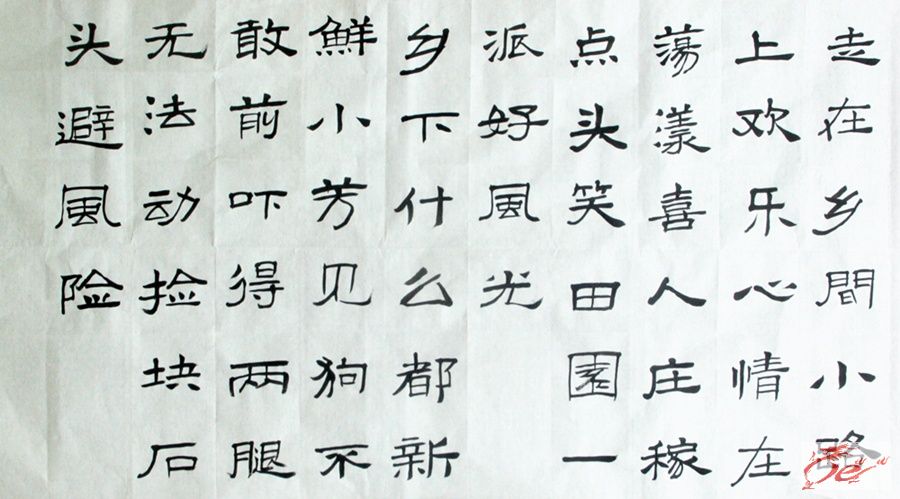 走在乡間小路
上欢乐心情在
蕩漾喜人庄稼
点头笑田園一
派好風光
乡下什么都新
鮮小芳见狗不
敢前吓得两腿
无法动捡块石
头避風险